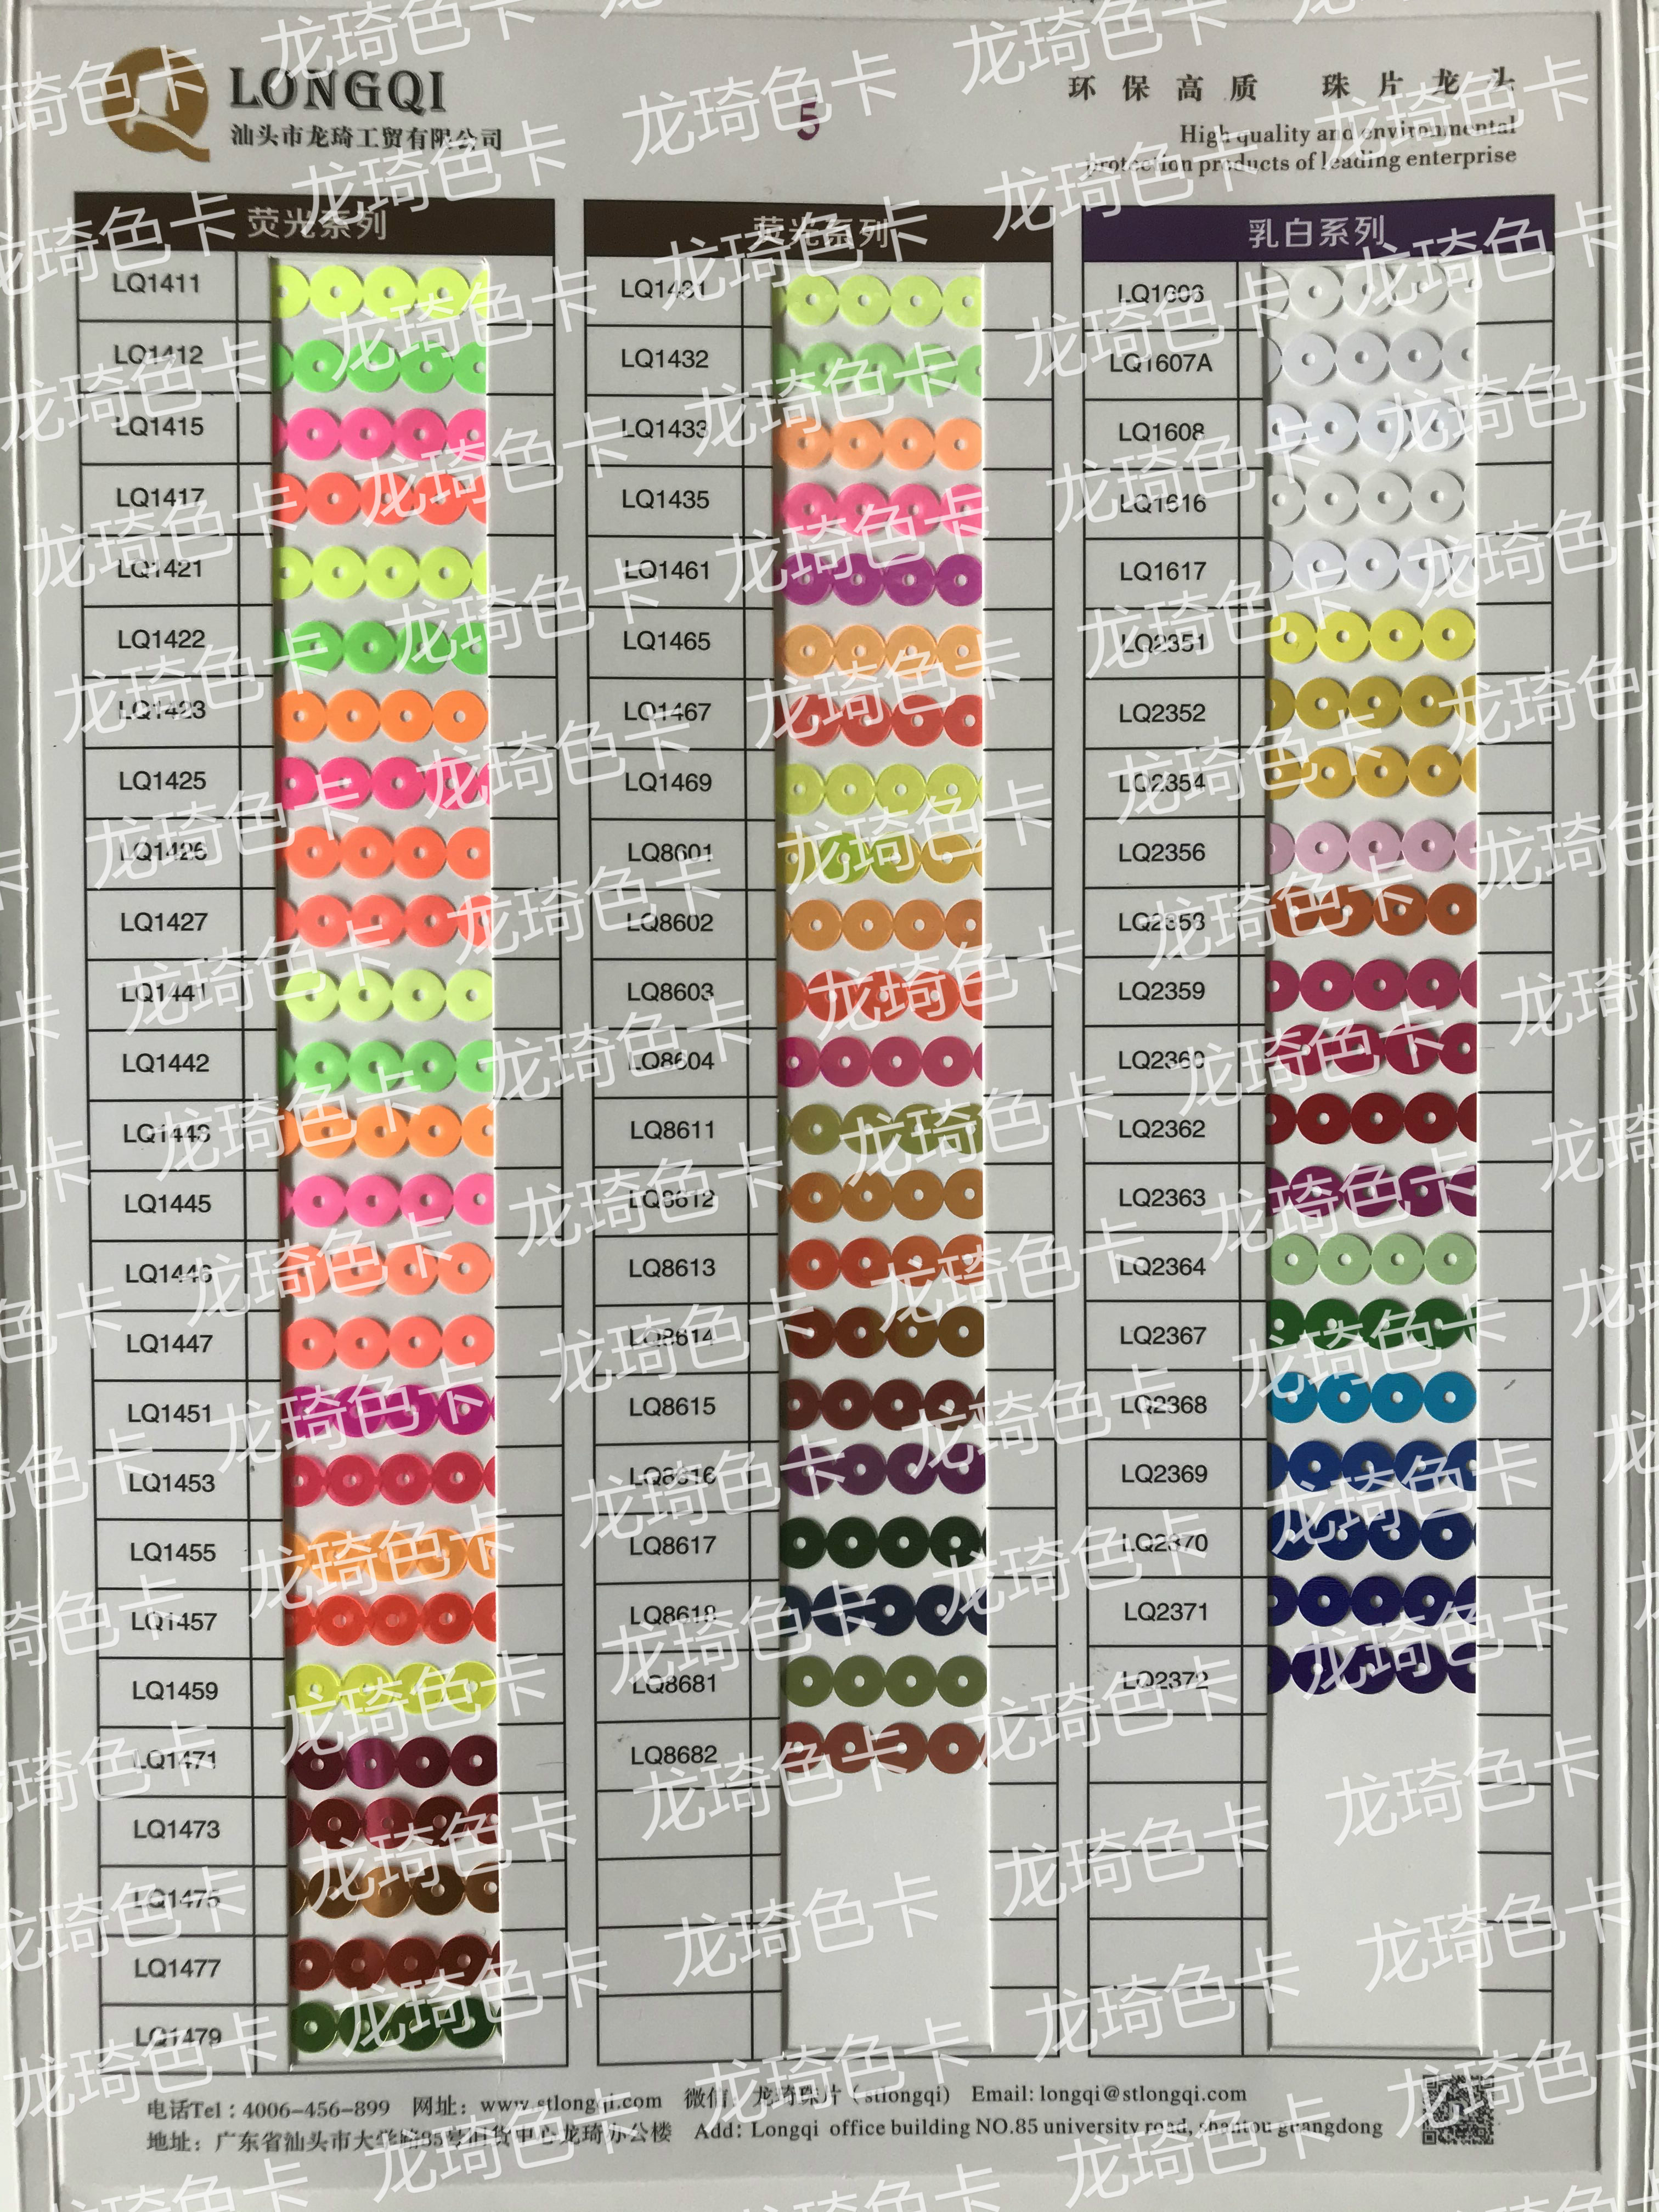 LONGQI
汕头市龙琦工贸有限公司
5
环保高质 珠片龙头
High quality and environmental
protection products of leading enterprise
荧光系列
LQ1411
LQ1412
LQ1415
LQ1417
LQ1421
LQ1422
LQ1423
LQ1425
LQ1426
LQ1427
LQ1441
LQ1442
LQ1443
LQ1445
LQ1446
LQ1447
LQ1451
LQ1453
LQ1455
LQ1457
LQ1459
LQ1471
LQ1473
LQ1475
LQ1477
LQ1479
荧光系列
LQ1431
LQ1432
LQ1433
LQ1435
LQ1461
LQ1465
LQ1467
LQ1469
LQ8601
LQ8602
LQ8603
LQ8604
LQ8611
LQ8612
LQ8613
LQ8614
LQ8615
LQ8616
LQ8617
LQ8618
LQ8681
LQ8682
乳白系列
LQ1606
LQ1607A
LQ1608
LQ1616
LQ1617
LQ2351
LQ2352
LQ2354
LQ2356
LQ2358
LQ2359
LQ2360
LQ2362
LQ2363
LQ2364
LQ2367
LQ2368
LQ2369
LQ2370
LQ2371
LQ2372
电话Tel：4006-456-899 网址：www.stlongqi.com 微信：龙琦珠片（stlongqi) Email: longqi@stlongqi.com
地址：广东省汕头市大学路85号旧货中心龙琦办公楼 Add: Longqi office building NO.85 university road, shantou guangdong
龙琦色卡